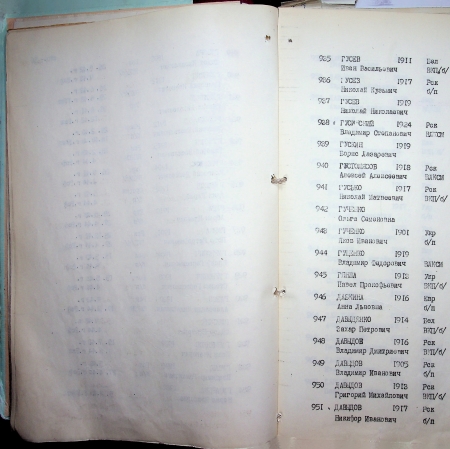 985 ГУСЕВ 1911 Бел
Иван Васильевич ВКП/б/
986 ГУСЕВ 1917 Рск
Николай Кузьмич б/п
987 ГУСЕВ 1919
Николай Николаевич
988 1924 Рск
Владимир Степанович ВЛКСМ
989 ГУСКИН 1919
Борис Лазаревич
940 1918 Рск
Алексей Алексеевич ВЛКСМ
941 ГУСЬКО 1917 Рск
Николай Матвеевич ВКП/б/
942 ГУЧЕНКО
Ольга Семеновна
948 ГУЧЕНКО 1901 Укр
Яков Иванович б/п
944 ГУЩЕНКО 1919
Владимир Федорович ВЛКСМ
945 1918 Укр
Павел Прокофьевич ВКП/б/
946 1916 Евр
Анна Львовна б/п
947 ДАВЫДЕНКО 1914 Бел
Захар Петрович ВКП/б/
948 ДАВЫДОВ 1916 Рск
Владимир Дмитриевич ВКП/б/
949 ДАВЫДОВ 1905 Рск
Владимир Иванович б/п
950 ДАВЫДОВ 1918 Рск
Григорий Михайлович ВКП/б/
951 ДАВЫДОВ 1917 Рск
Никифор Иванович б/п